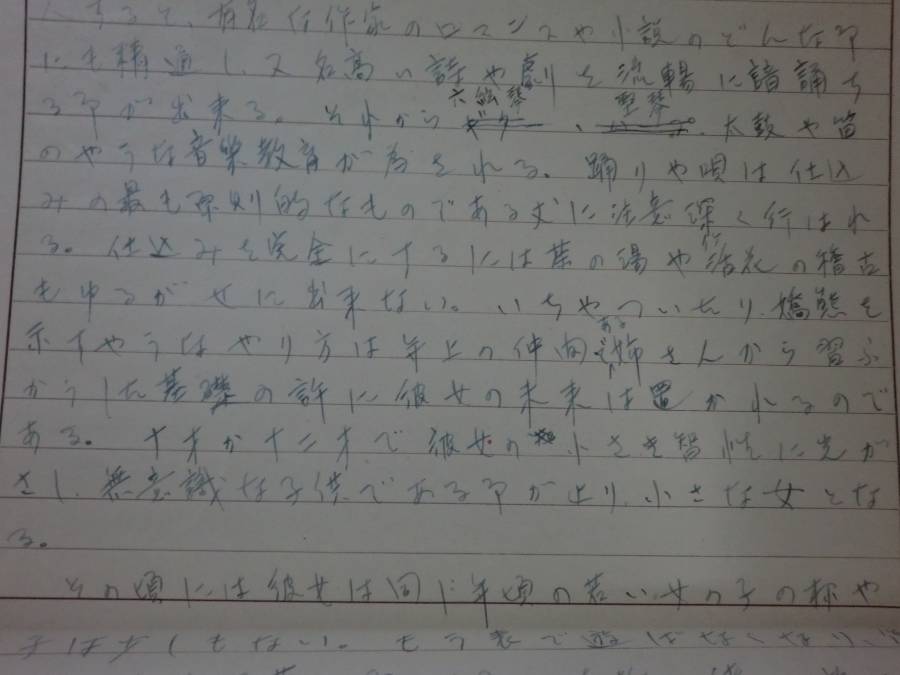 すると、有名な作家のロマンスや小説のどんな事
にも精通し、又名高い詩や劇を流暢に諳誦す
る事が出来る。それから六絃琴、竪琴、太鼓や笛
のやうな音楽教育が為される。踊りや唄は仕込
みの最も原則的なものである丈に注意深く行はれ
る。仕込みを完全にするには茶の湯や活花の稽古
もゆるがせに出来ない。いちやついたり、嬌態を
示すやうなやり方は年上の仲間である姉さんから習ふ
かうした基礎の許に彼女の未来は置かれるので
ある。十才か十二才で彼女の小さき智性に光が
さし、無意識な子供である事が止り、小さな女とな
る。
その頃には彼女は同じ年頃の若い女の子の様や
子は少しもない。もう表で遊ばなくなり、